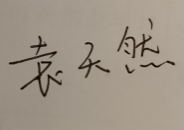 袁天然